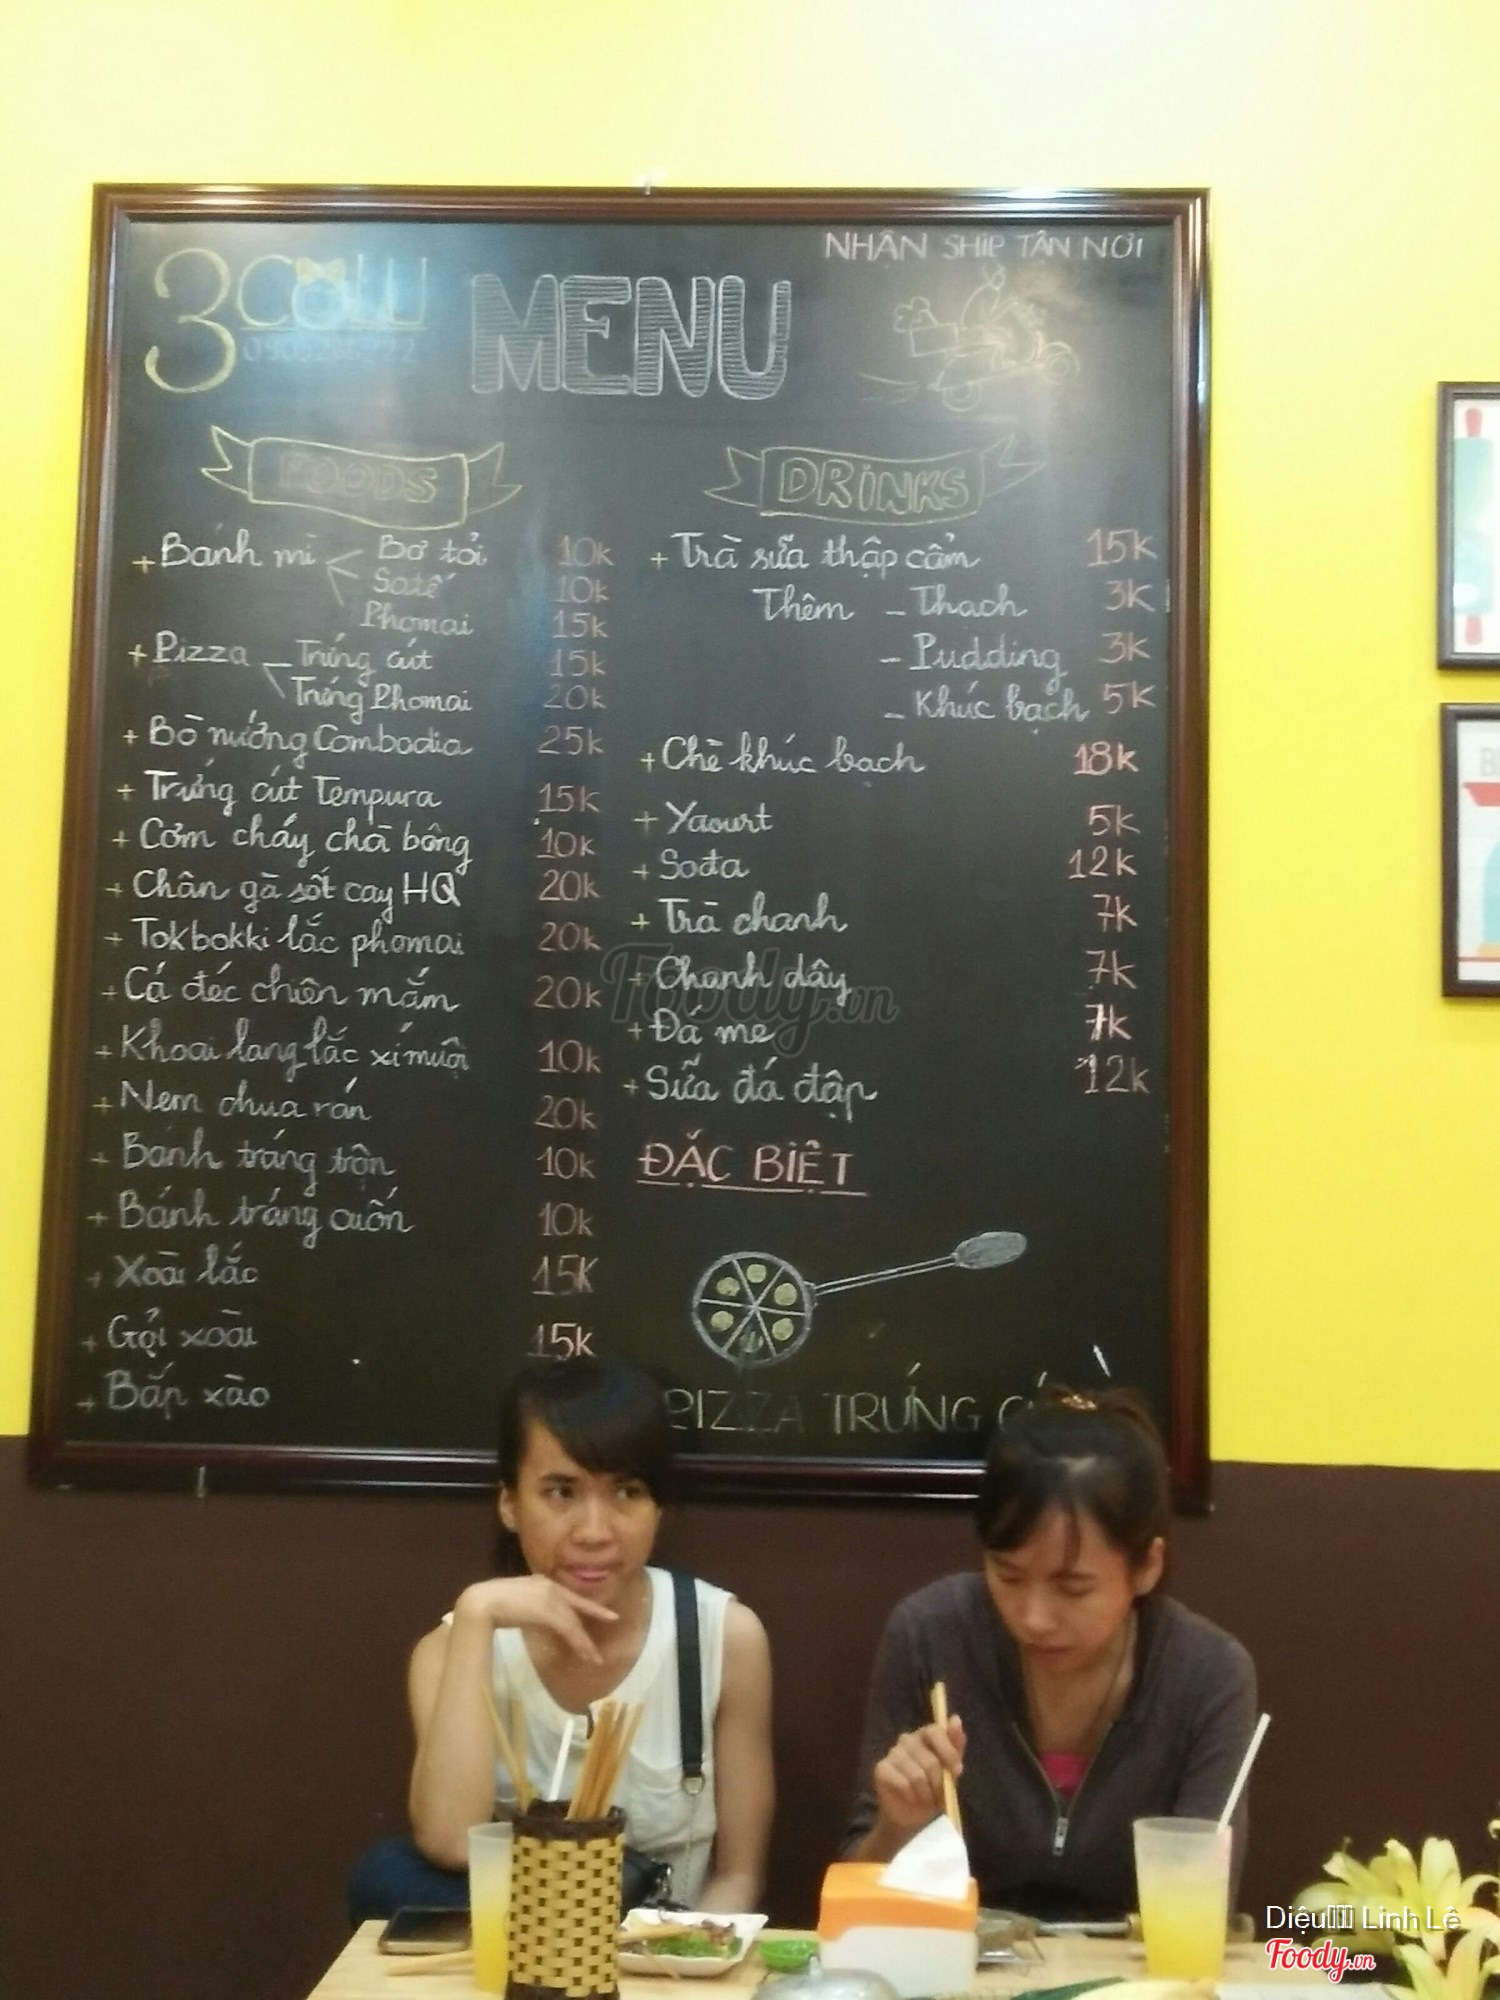 NHẬN SHIP TẬN NƠI
3 COW MENU
FOODS
+ Bánh mì Bơ tỏi 10k
Satế 10k
Phomai 15k
+ Pizza - Trứng cút 15k
Trứng Phomai 20k
+ Bò nướng Combodia 25k
+ Trứng cút Tempura 15k
+ Cơm cháy chà bông 10k
+ Chân gà sốt cay HQ 20k
+ Tokbokki lắc phomai 20k
+ Cá đéc chiên mắm 20k
+ Khoai lang lắc xí muội 10k
+ Nem chua rán 20k
+ Bánh tráng trộn 10k
+ Bánh tráng cuốn 10k
+ Xoài lắc 15K
+ Gỏi xoài 15k
+ Bắp xào
DRINKS
+ Trà sữa thập cẩm 15k
Thêm - Thạch 3K
- Pudding 3k
- Khúc bạch 5k
+ Chè khúc bạch 18k
+ Yaourt 5k
+ Sođa 12k
+ Trà chanh 7k
+ Chanh dây 7k
+ Đá me 7k
+ Sữa đá đập 12k
ĐẶC BIỆT
PIZZA TRỨNG
Foody.vn
Diệu Linh Lê
Foody.vn